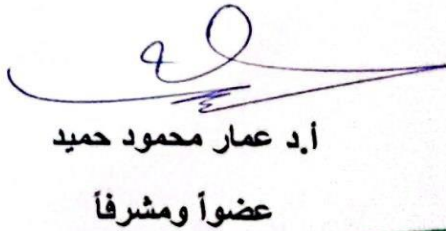 أ.د عمار محمود حميد
عضواً ومشرفاً